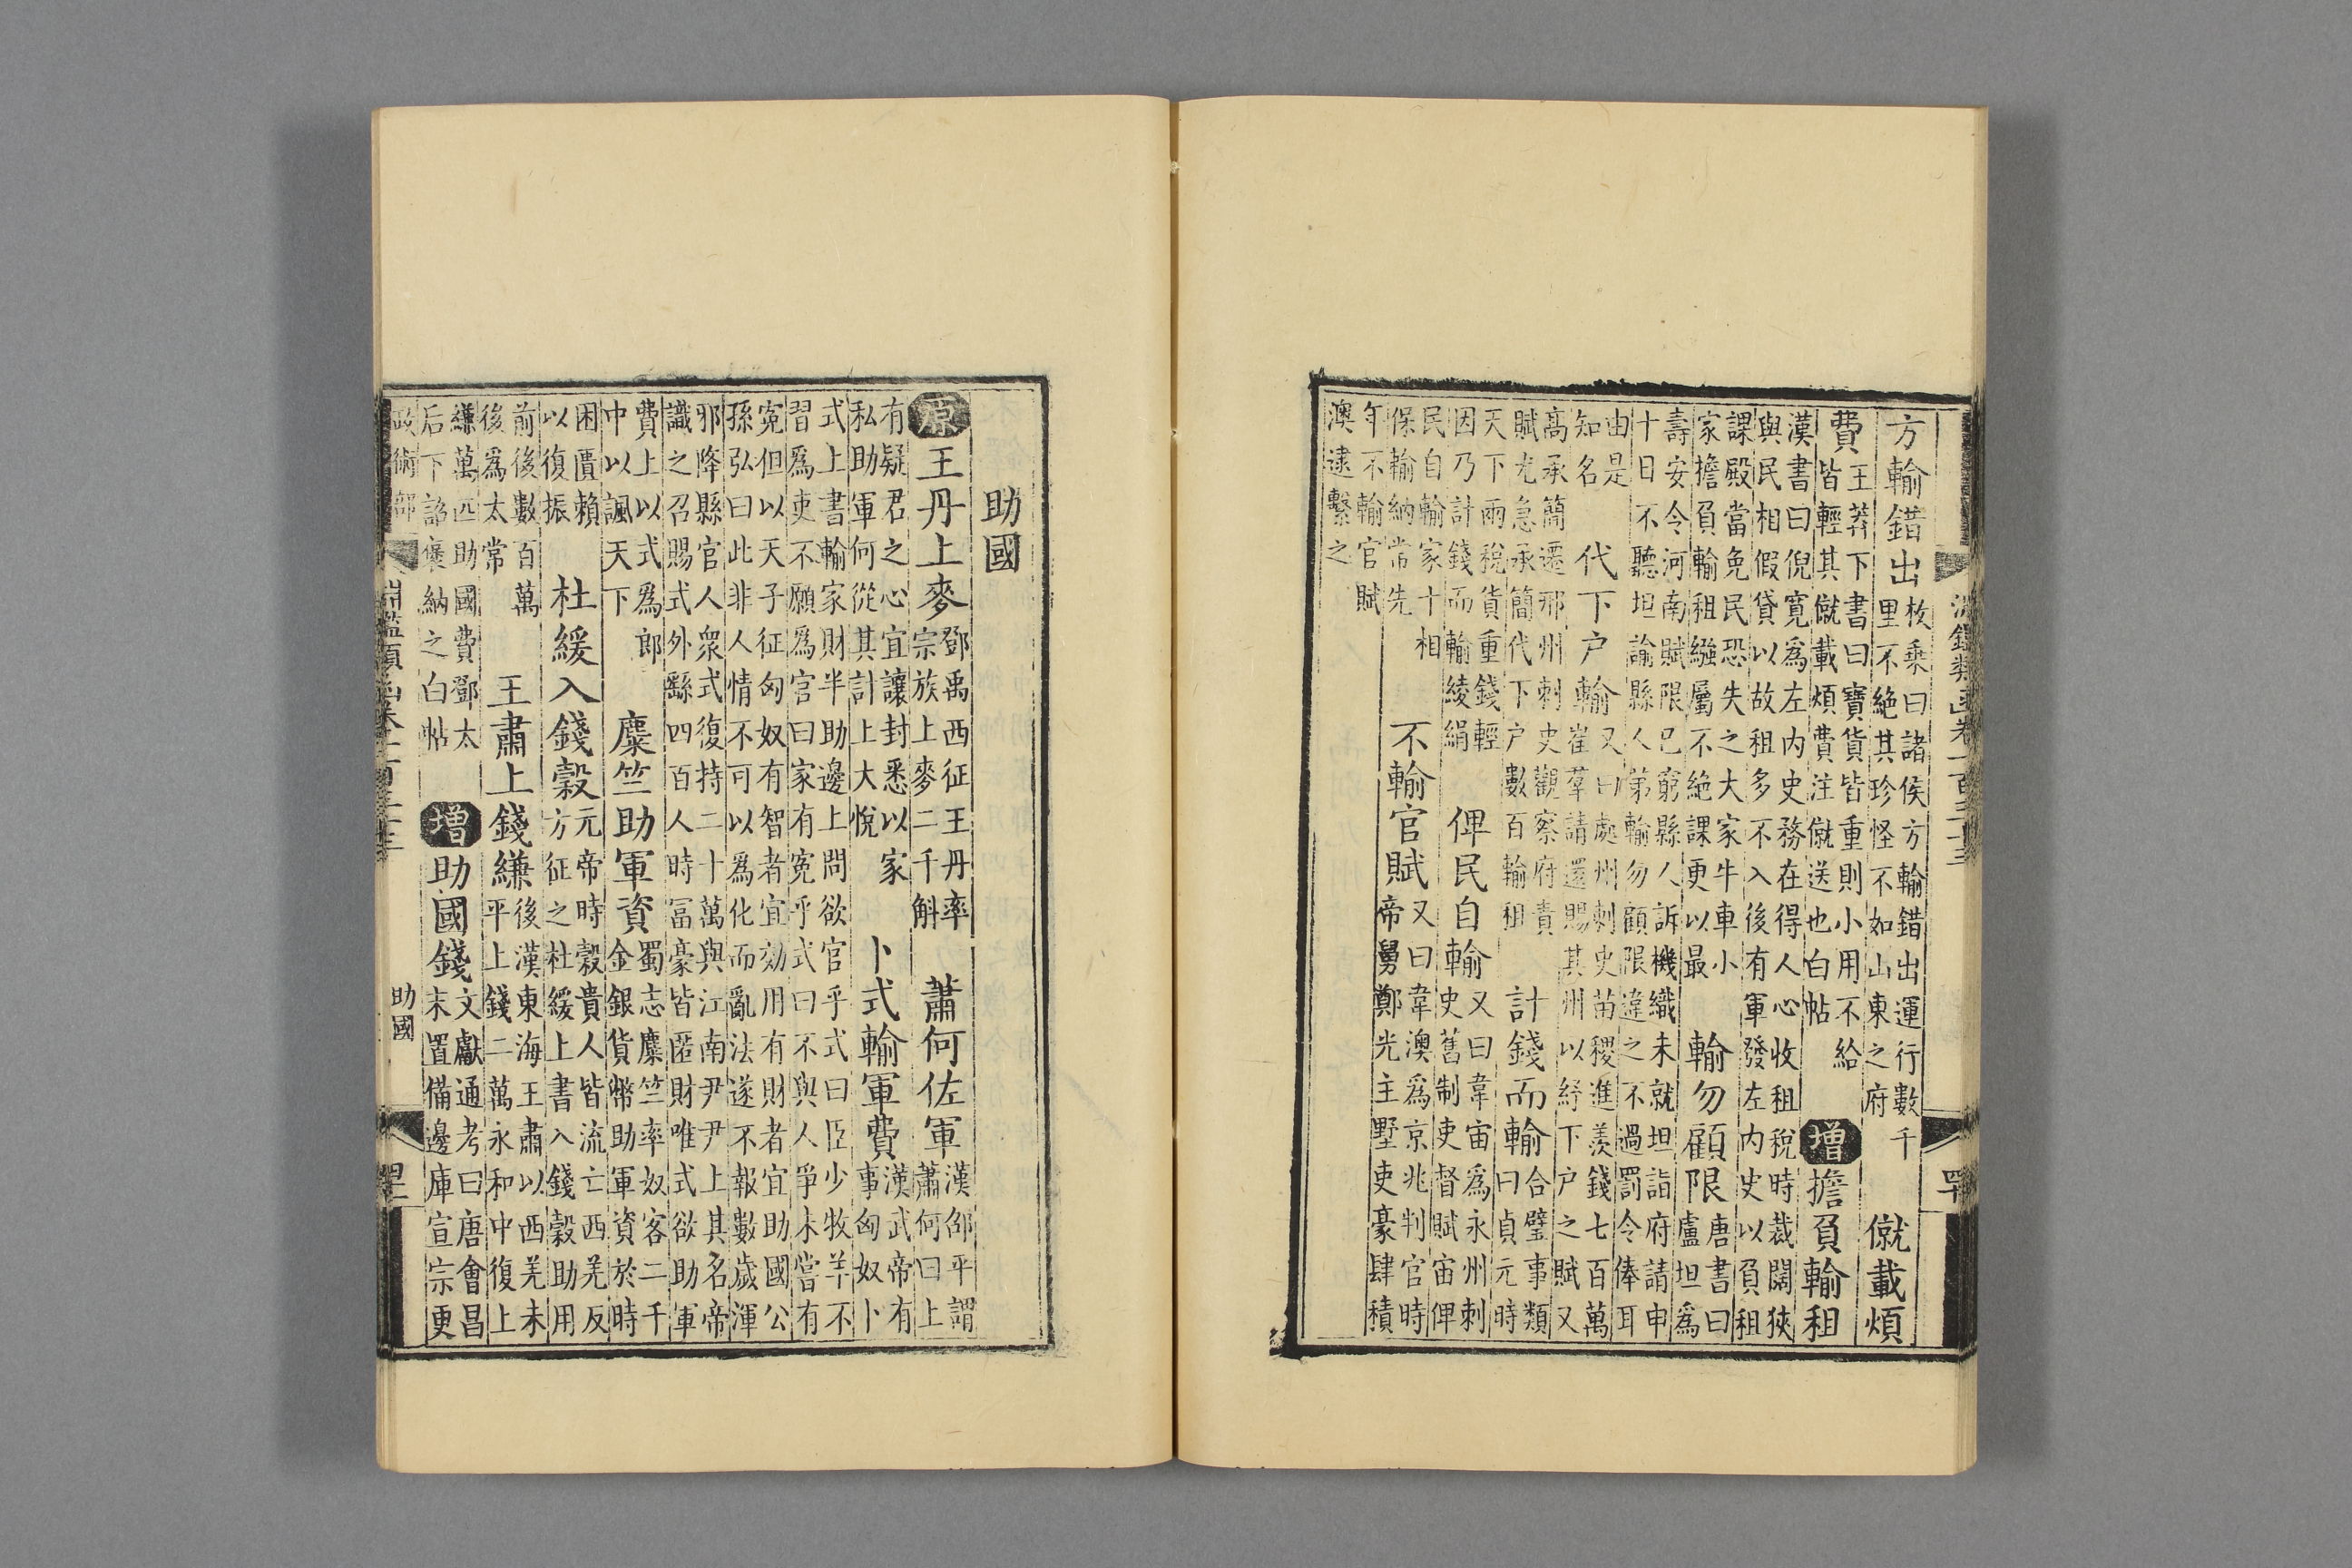 淵鑑類函卷一百三十三
方輸錯出
枚乘曰諸侯方輸錯出運行數千
里不絕其珍怪不如山東之府
僦載煩
費
王莽下書曰寶貨皆重則小用不給
皆輕其僦載煩費注僦送也白帖
增
擔負輸租
漢書曰倪寬爲左内史務在得人心收租稅時裁闊狹
與民相假貸以故租多不入後有軍發左内史以負租
課殿當免民恐失之大家牛車小
家擔負輸租繦屬不絕課更以最
輸勿顧限
唐書曰
盧坦爲
壽安令河南賦限已窮縣人訴機織未就坦詣府請申
十日不聽坦諭縣人弟輸勿顧限違之不過罰令俸耳
由是
知名
代下户輸
又曰處州刺史苗稷進羨錢七百萬
崔羣請還賜其州以紓下户之賦又
高承簡遷邢州刺史觀察府責
賦尤急承簡代下户數百輸租
計錢而輸
合璧事類
曰貞元時
天下兩稅貨重錢輕
因乃計錢而輸綾絹
俾民自輸
又曰韋宙爲永州刺
史舊制吏督賦宙俾
民自輸家十相
保輸納常先
不輸官賦
又曰韋澳爲京兆判官時
帝舅鄭光主墅吏豪肆積
年不輸官賦
澳逮繫之
助國
原
王丹上麥
鄧禹西征王丹率
宗族上麥二千斛
蕭何佐軍
漢邵平謂
蕭何曰上
有疑君之心宜讓封悉以家
私助軍何從其計上大悅
卜式輸軍費
漢武帝有
事匈奴卜
式上書輸家財半助邊上問欲官乎式曰臣少牧羊不
習爲吏不願爲官曰家有寃乎式曰不與人爭未嘗有
寃但以天子征匈奴有智者宜効用有財者宜助國公
孫弘曰此非人情不可以爲化而亂法遂不報數歲渾
邪降縣官人衆式復持二十萬與江南尹尹上其名帝
識之召賜式外繇四百人時冨豪皆匿財唯式欲助軍
費上以式爲郎
中以諷天下
麋竺助軍資
蜀志麋竺率奴客二千
金銀貨幣助軍資於時
困匱賴
以復振
杜緩入錢穀
元帝時穀貴人皆流亡西羌反
方征之杜緩上書入錢穀助用
前後數百萬
後爲太常
王肅上錢縑
後漢東海王肅以西羌未
平上錢二萬永和中復上
縑萬匹助國費鄧太
后下詔褒納之白帖
增
助國錢
文獻通考曰唐會昌
末置備邊庫宣宗更
政術部
淵鑑類函卷一百三十三
助國